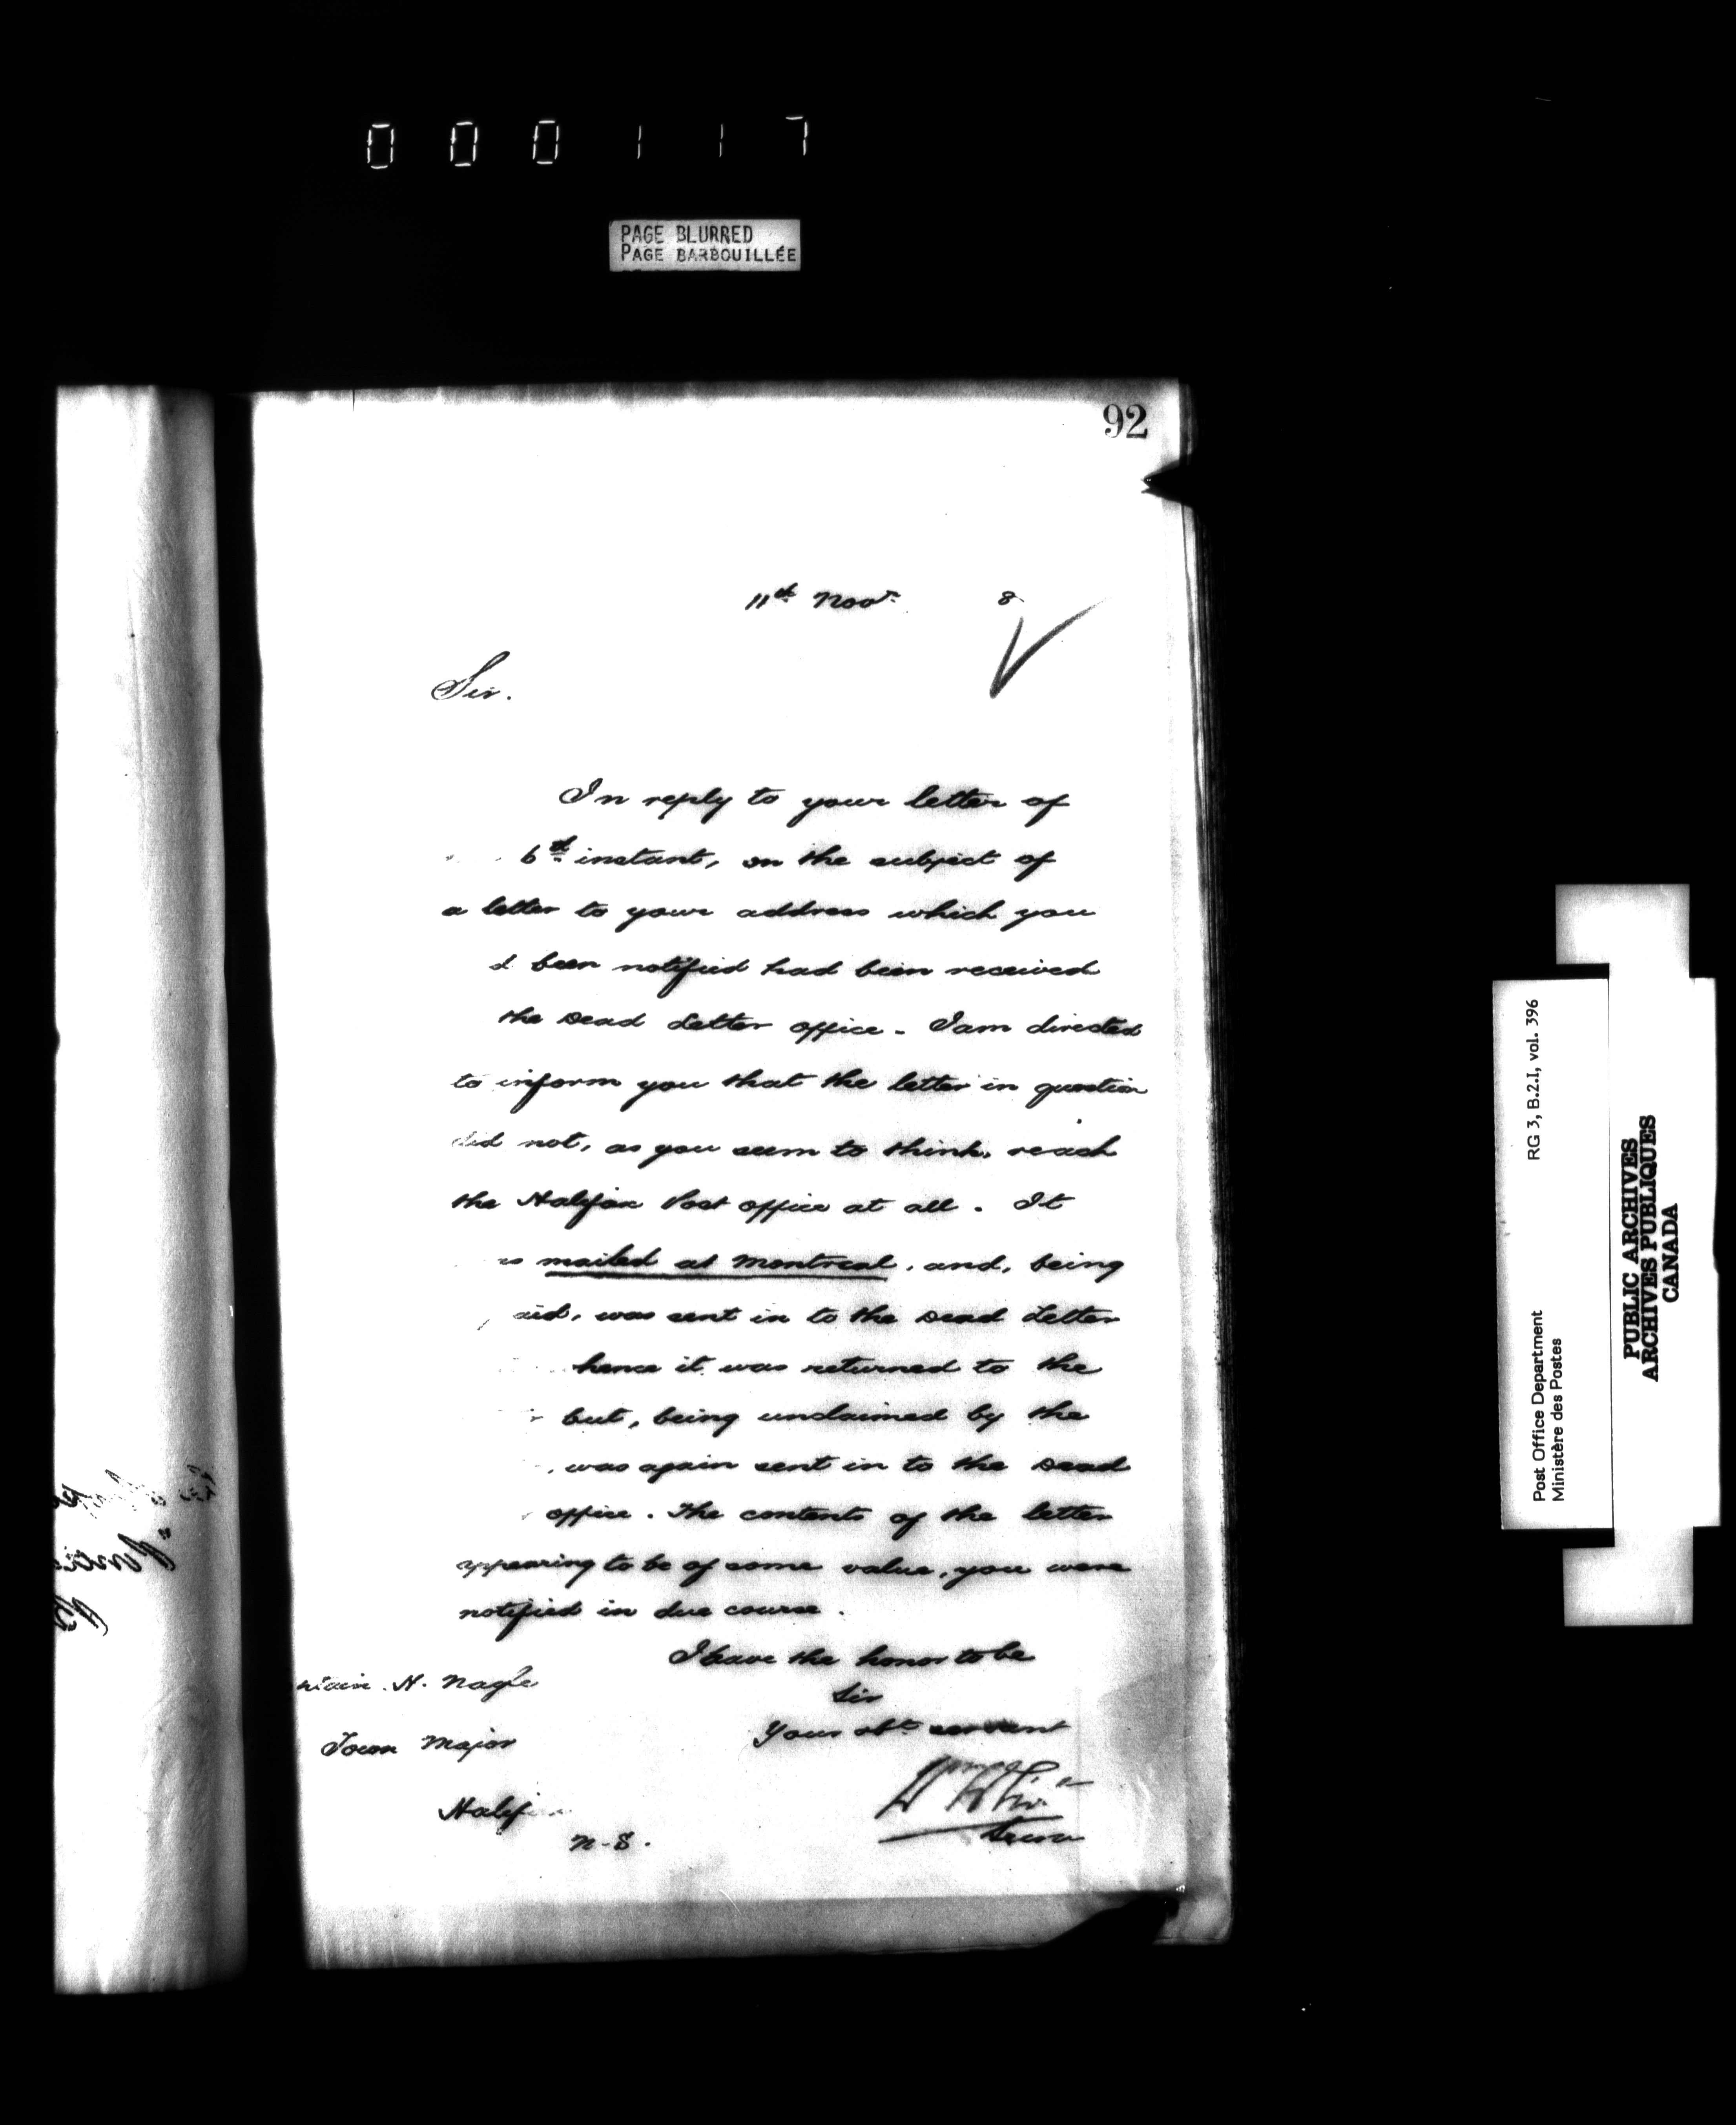 000117
PAGE BLURRED
PAGE BARBOUILLÉE
92
11th Novr. 8
Sir.
In reply to your letter of
6th instant, on the subject of
a letter to your address which you
d been notified had been received
the Dead Letter office - I am directed
to inform you that the letter in question
did not, as you seem to think, reach
the Halifax Post office at all. It
s mailed at Montreal, and, being
aid, was sent in to the Dead Letter
hence it was returned to the
but, being unclaimed by the
, was again sent in to the Dead
office. The contents of the letter
appearing to be of some value, you were
notified in due course.
I have the honor to be
Sir
Your obt. servant
N. Nagle
Town Major
Halif
N.S.
Post Office Department RG 3, B.2.I, vol. 396
Ministère des Postes
PUBLIC ARCHIVES
ARCHIVES PUBLIQUES
CANADA